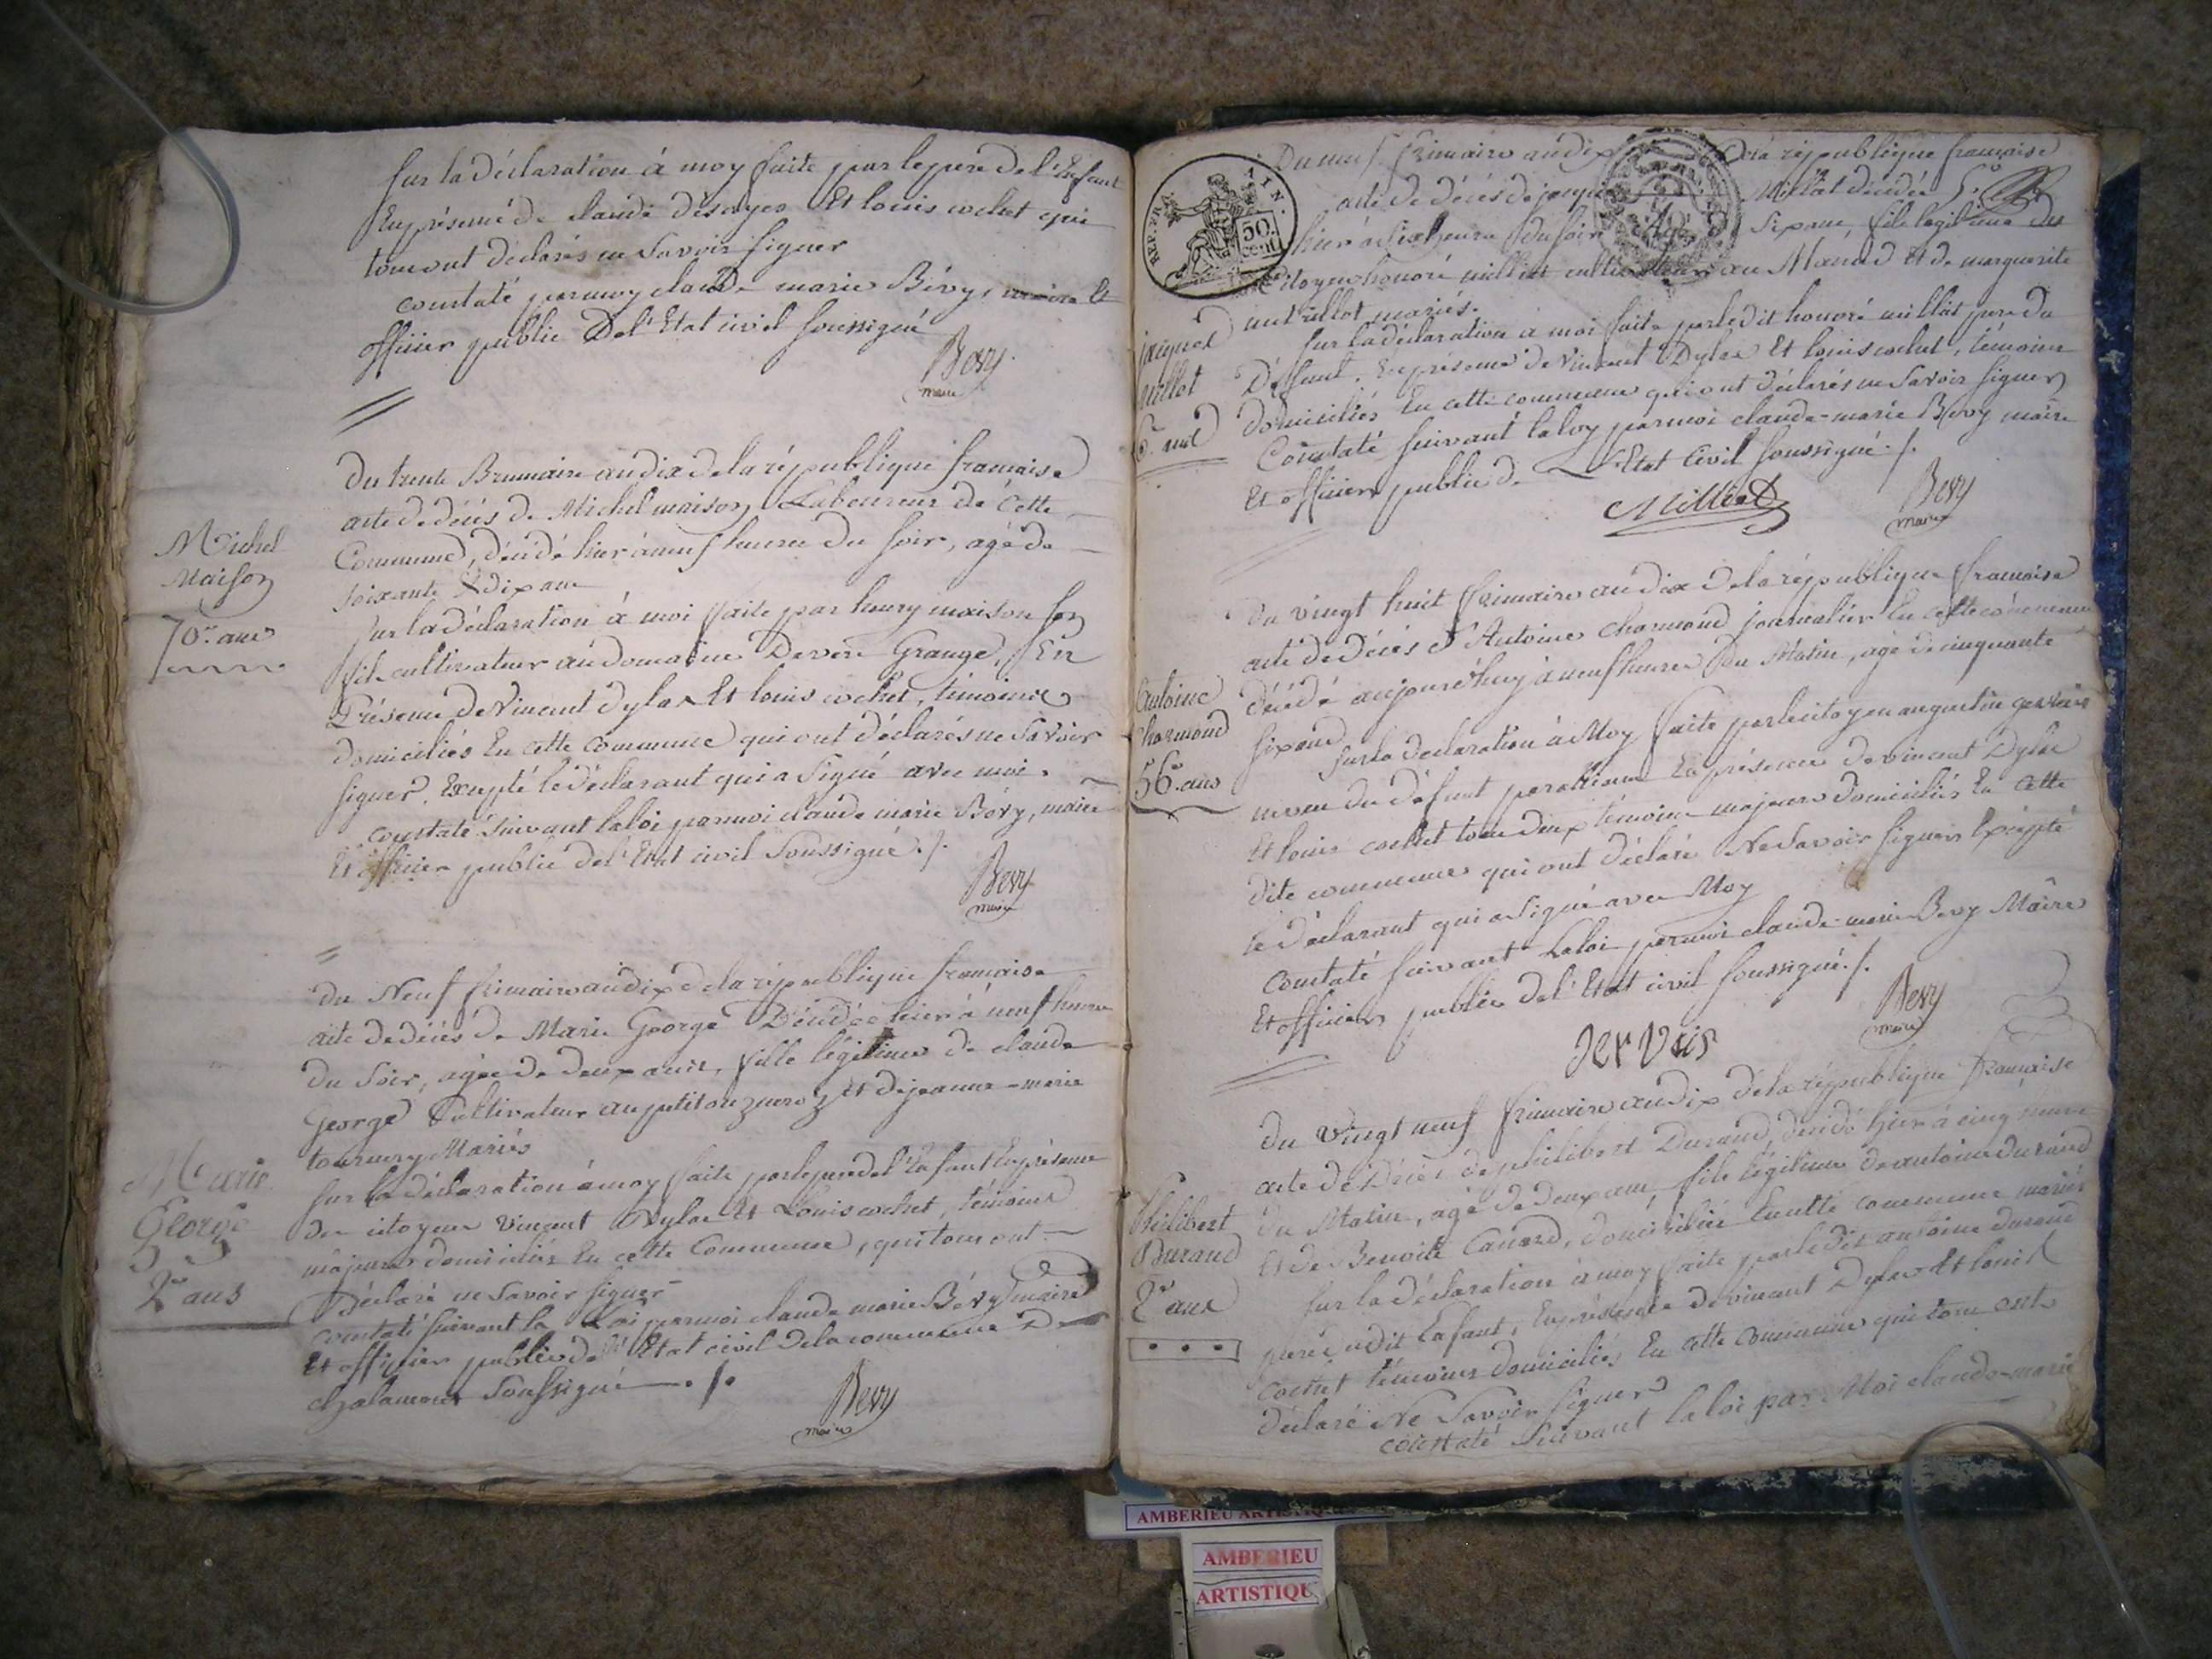 Sur la déclaration à moy faite par le pere de l'Enfant
En présence de claude desayes Et louis cochet qui
tous ont déclarés ne Savoir signer
constaté par moy claude marie Bévy, maire Et
officier public de l'Etat civil soussigné
Bevy
maire
Du trente Brumaire an dix de la république francaise
acte de décès de Michel maison Laboureur de Cette
Commune, décédé hier à neuf heures du soir, agé de
soixante & dix ans
Michel
Maison
70 ans
Sur la déclaration à moi faite par henry maison son
fils cultivateur au domaine De vere Grange, En
Présence de Vincent dylas Et louis cochet, témoins
domiciliés En cette commune qui ont déclarés ne Savoir
signer, Excepté le déclarant qui a Signé avec moi.
constaté Suivant la loi par moi claude marie Bévy, maire
Et officier public de l'Etat civil Soussigné ./.
Bevy
maire
du Neuf frimaire an dix de la république francaise
acte de décès de Marie George Décédée hier à neuf heures
du Soir, agée de deux ans, fille légitime de claude
George Cultivateur au petit et de jeanne-marie
tournery Mariés
Marie
George
2 ans
Sur la déclaration à moy faite par le pere de l'Enfant En présence
des citoyens vincent Dylas Et Louis cochet, témoins
majeurs domiciliés En cette Commune, qui tous ont
Déclaré ne Savoir signer
constaté suivant la Loi par moi claude marie Bévy maire
Et officier public de l'Etat civil de la commune De
chalamont Soussigné ./.
Bevy
maire
REP. FRA. AIN.
50 cent.
Du neuf frimaire an dix De la république francaise
acte de décès de jacques Millat décédé
hier à six heures du soir agé de Six ans, fils légitime du
Citoyen honoré millat cultivateur au Mand Et de marguerite
mariés.
jacques
millot
6 ans
Sur la déclaration à moi faite par le dit honoré millat pere du
Défunt, En présence de Vincent Dylas Et louis cochet, témoins
domiciliés En cette commune qui ont déclarés ne Savoir signer
Constaté suivant la loy par moi claude-marie Bévy maire
Et officier public de L'Etat Civil soussigné ./.
Milliat
Bevy
maire
Du vingt huit frimaire an dix de la république francaise
acte de Décès d'Antoine charmond journalier En cette commune
décédé aujourd'huy à neuf heures Du Matin, agé de cinquante
six ans
Antoine
Charmond
56 ans
Sur la déclaration à Moy faite par le citoyen augustin gervais
neveu du défunt par alliance En présence de vincent Dylas
Et louis cochet tous deux témoins majeurs domiciliés En cette
dite commune qui ont déclaré Ne Savoir signer Excepté
le déclarant qui a Signé avec Moy
Constaté suivant La loi par moi claude-marie Bevy Maire
Et officier public de l'Etat civil soussigné ./.
Jervais
Bevy
maire
du Vingt neuf frimaire an dix de la république francaise
acte de Décès de philibert Durand, décédé hier à cinq heures
du Matin, agé de deux ans, fils légitime de antoine durand
Et de Benoite Canard, domiciliés En cette commune mariés
Philibert
Durand
2 ans
Sur la déclaration à moy faite par le dit antoine durand
pere du dit Enfant, En présence de vincent Dylas Et louis
Cochet témoins domiciliés En cette commune qui tous ont
déclaré Ne Savoir signer
constaté Suivant la loi par Moi claude-marie
AMBERIEU ARTISTIQUE
AMBERIEU
ARTISTIQU